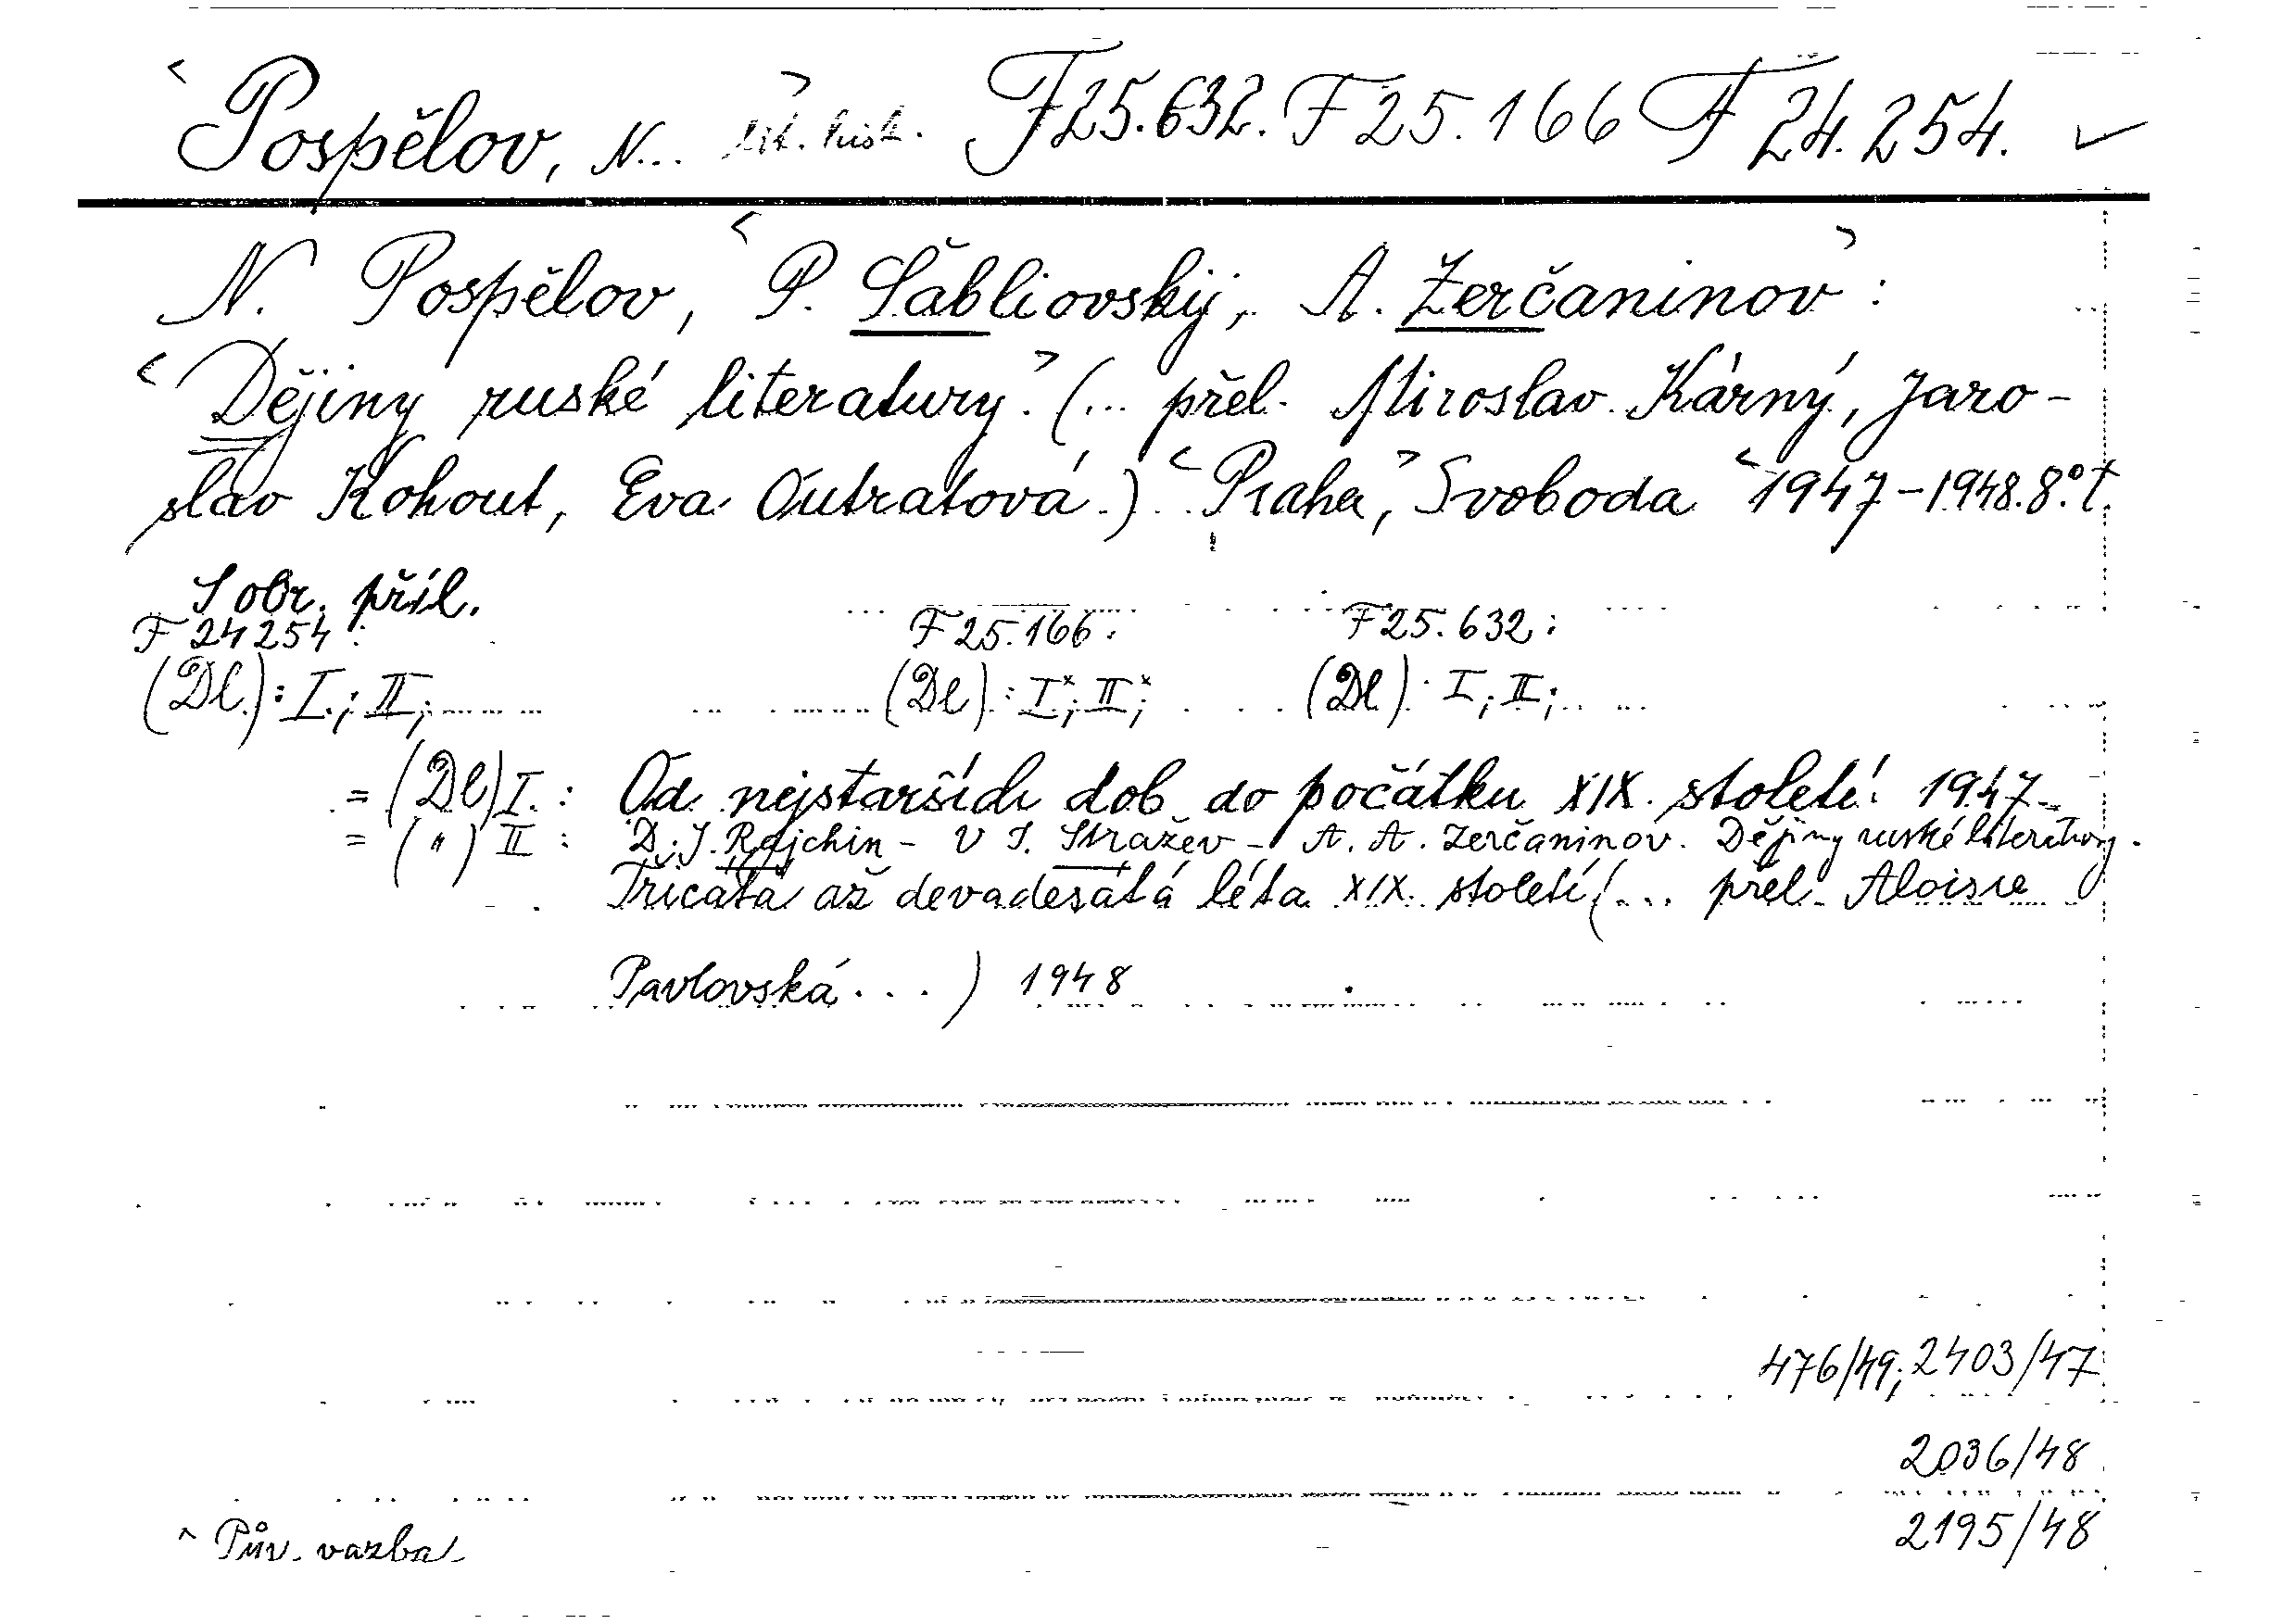 <Pospělov, N...> lit. hist. F25.632. F25.166 F 24.254. ✓
N. Pospělov, <P. Šabliovskij, A. Žerčaninov>:
<Dějiny ruské literatury.> (... přel. Miroslav Kárný, Jaro-
slav Kohout, Eva Outratová.) <Praha,> Svoboda <1947-1948. 8° t.
S obr. příl.
F 24254: F 25.166: F 25.632:
(Dl.): I.; II; (Dl): I×; II×; (Dl): I; II;
= (Dl) I.: Od nejstarších dob do počátku XIX. století. 1947.
= (") II: D. J. Rajchin - V I. Stražev - A. A. Zerčaninov. Dějiny ruské literatury.
Třicátá až devadesátá léta XIX. století (... přel. Aloisie
Pavlovská...) 1948
476/49; 2403/47
2036/48
2195/48
^ Pův. vazba